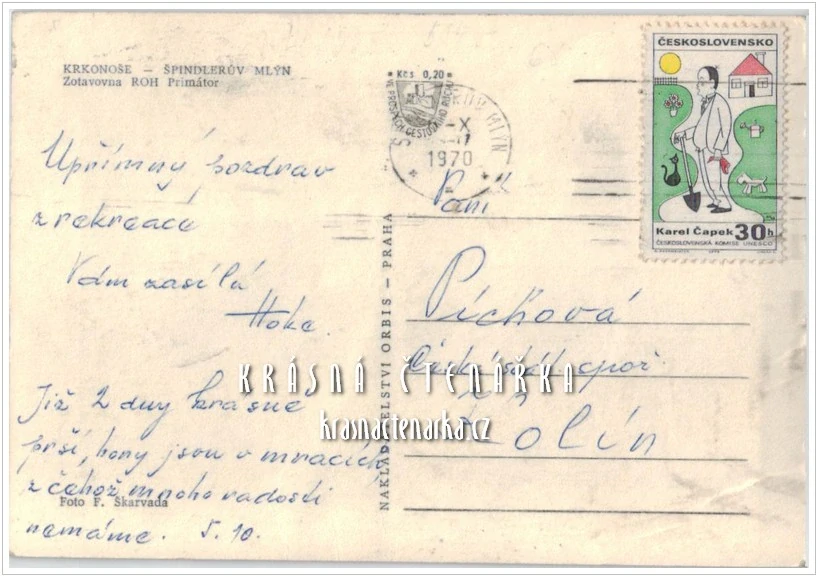 KRKONOŠE — ŠPINDLERŮV MLÝN
Zotavovna ROH Primátor
Upřímný pozdrav
z rekreace
Vám zasílá
Hoke.
Již 2 dny krasne
prší, hory jsou v mracích
z čehož mnoho radosti
nemáme. 5. 10.
Foto F. Škarvada
NAKLADATELSTVÍ ORBIS — PRAHA
Kčs 0,20
MLÝN
-X
1970
ČESKOSLOVENSKO
Karel Čapek 30h
ČESKOSLOVENSKÁ KOMISE UNESCO
Paní
Píchová
Česká spoř.
Kolín
KRÁSNÁ ČTENÁŘKA
krasnactenarka.cz